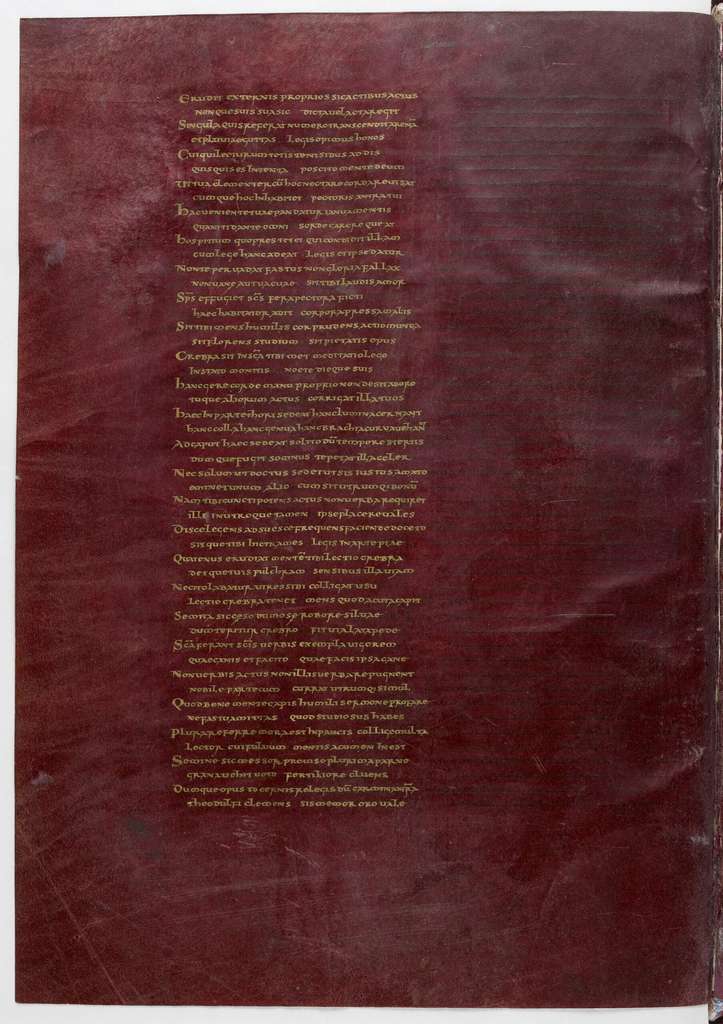 Erudit externis proprios sic actibus actus
non que suis suasic dicta vel acta regit
Singula quis referat numero transcendit arenā
et pluvia e guttas legis opimus honos
Cuiquilectur
quisquis es intenta poscito mente deum
cum que hoc inhabitet pectoris antra tui
Hac veniente tuae pandatur ianua mentis
quam ti dante omni sorde carere queat
hospitium quo prestet et qui condidit illam
cum lege hanc adeat legis et ipse dator
Non te pervadat fastus non gloria fallax
non vane aut vacuae sit tibi laudis amor
Sp̄s effugiet sc̄s fera pectora ficti
haec habitator adit corpora pressa malis
Sit tibi mens humilis cor prudens actio munda
sit florens studium sit pietatis opus
Crebra sit in sc̄a tibimet meditatio lege
instato monitis nocte dieque suis
hanc gere corde manu proprio non desit ab ore
tuque aliorum actus corrigat illa tuos
Haec in parte thori sedeat hanc lumina cernant
hanc colla hanc genua hanc brachia curva vehant
Ad caput haec sedeat solito dū tempore stertis
dumque fugit somnus te petat illa celer
Nec solum ut doctus sed et ut sis iustus amato
omne unum alio cum sit utrumque bonū
Nam tibi cunctipotens actus non verba requiret
ille in utroque tamen ipse placere vales
Disce legens adsuesce frequens faciendo doceto
sisque tibi hic trames legis in arte piae
Quatenus erudiat mentē tibi lectio crebra
det que tuis pulchram sensibus illa viam
Nec tolabatur vires sibi colligat usu
lectio crebra tenet mens quod acuta capit
Semita sic
dum teritur crebro fit via lata pede
Sc̄a ferant sc̄is verbis exempla vigorem
quae canis et facito quae facis ipsa cane
Non verbis actus non illis verba repugnent
nobile par tecum currat utrumque simul
Quod bene mente capis humili sermone profare
ne fastu amittas quod studiosus habes
Plura referre mora est in paucis collige multa
lector cui fulvum mentis acumen inest
Semine sic messor promis e plurima parvo
grana vehit voto fertiliore cluens
Dumque opus hoc cernis relegis dū carmina nr̄a
Theodulfi clemens sis memor oro vale